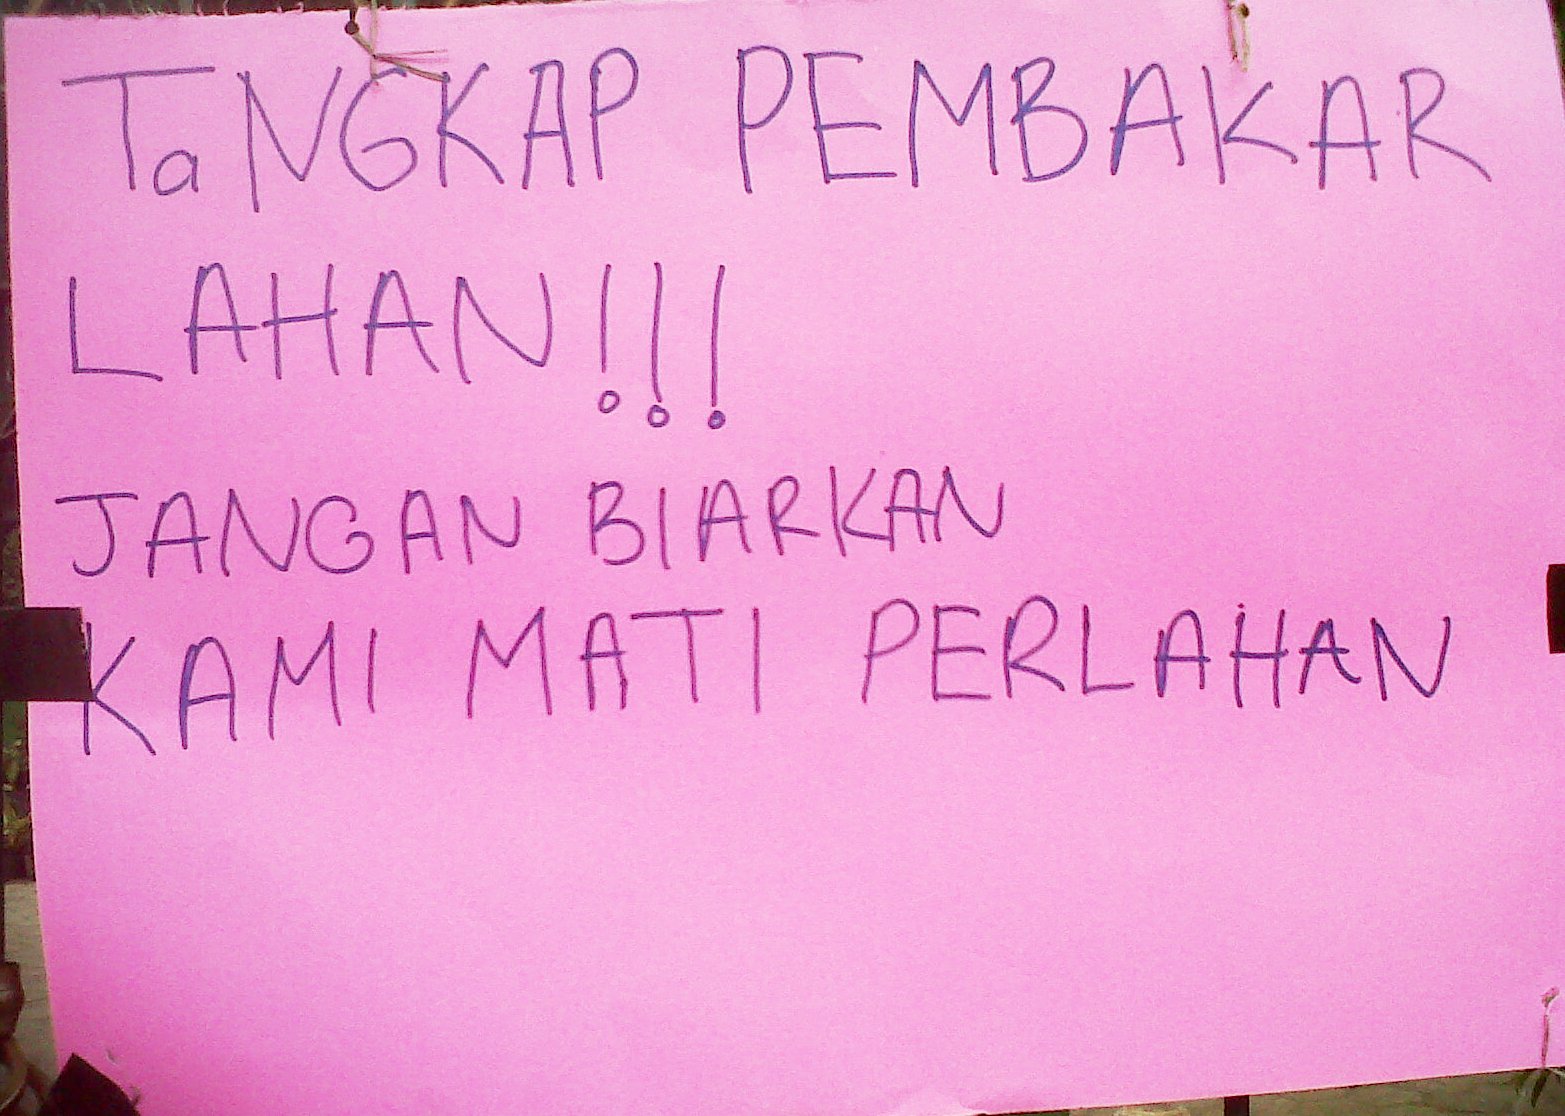 TaNGKAP PEMBAKAR
LAHAN!!!
JANGAN BIARKAN
KAMI MATI PERLAHAN